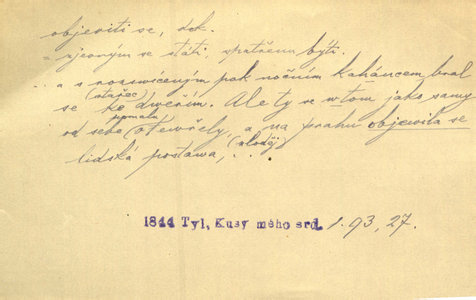 objeviti se, dok.
= zjevným se státi, spatřenu býti.
.. a s rozsvíceným pak nočním kahancem bral
se (stařec) ke dveřím. Ale ty se w tom jako samy
od sebe pomalu otewřely, a na prahu objewila se
lidská postawa, (zloděj) ..
1844 Tyl, Kusy mého srd. 1. 93, 27.